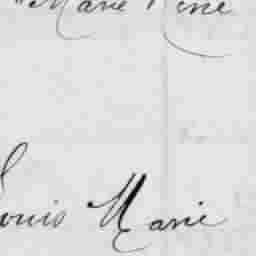 "Marie René
Louis Marie